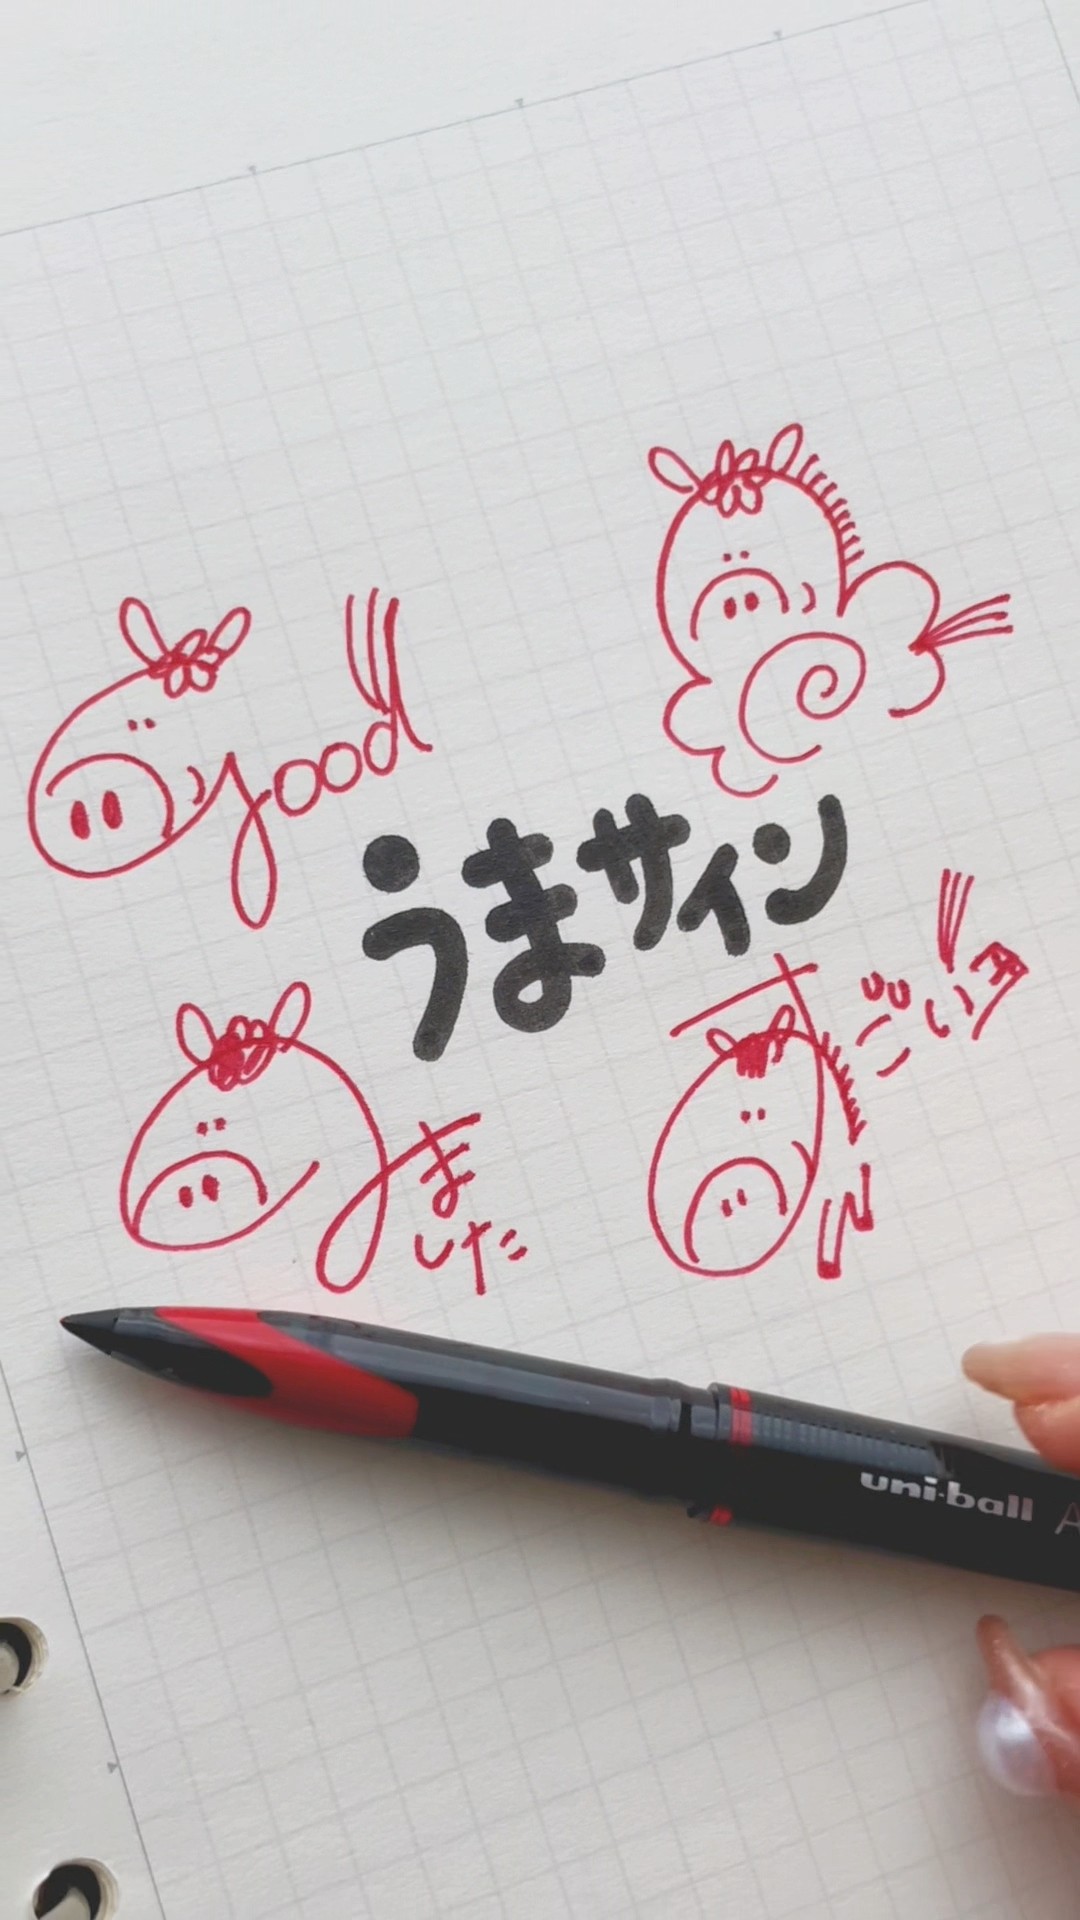 good
うまサイン
みました
すごい!!
uni-ball A